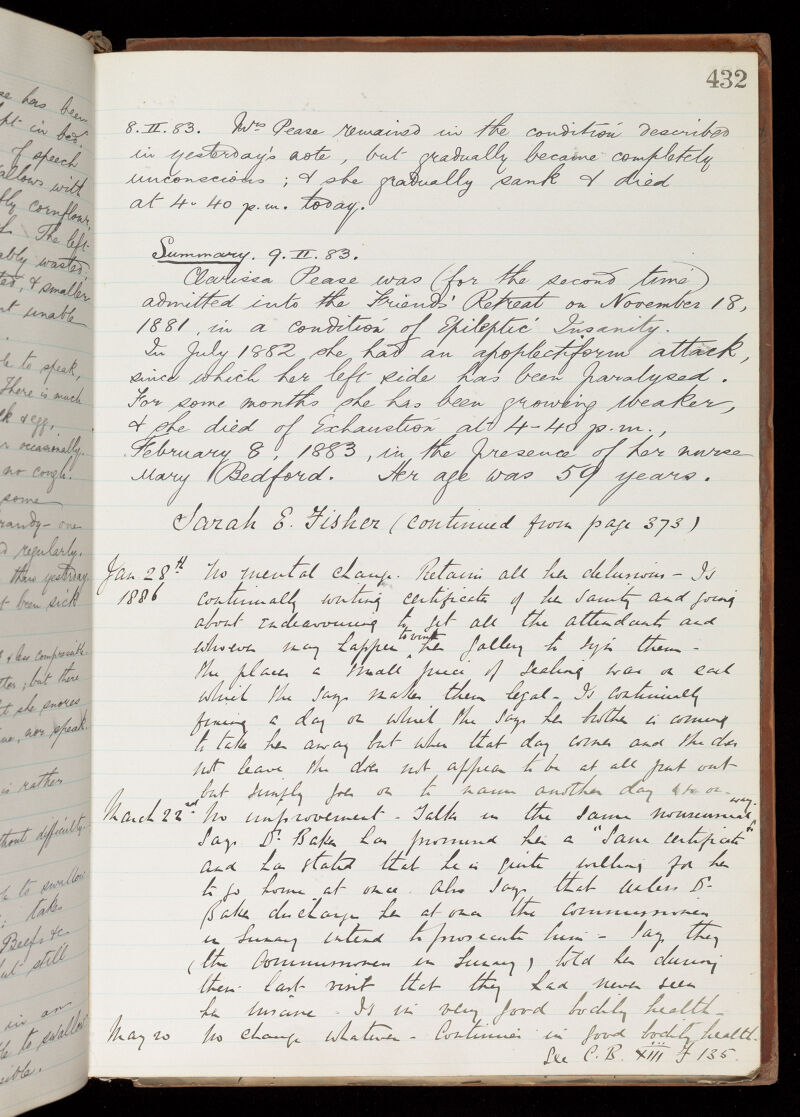 432
8. II. 83. Mrs Pease remained in the condition described
in yesterday's note, but gradually became completely
unconscious; & she gradually sank & died
at 4-40 p.m. today.
Summary. 9. II. 83.
Clarissa Pease was (for the second time)
admitted into the Friends' Retreat on November 18,
1881, in a condition of Epileptic Insanity.
In July 1882 she had an apoplectiform attack,
since which her left side has been paralysed.
For some months she has been growing weaker,
& she died of Exhaustion at 4-40 p.m.,
February 8, 1883, in the presence of her nurse
Mary Bedford. Her age was 59 years.
Sarah E. Fisher (continued from page 373)
Jan 28th No mental change. Retains all her delusions - Is
1886 continually writing certificates of her sanity and going
about endeavouring to get all the attendants and
whoever may happen to visit her gallery to sign them -
She places a small piece of sealing wax on each
which she says makes them legal - Is continually
fixing a day on which she says her brother is coming
to take her away but when that day comes and she does
not leave she does not appear to be at all put out
but simply goes on to name another day
March 22nd No improvement - Talks in the same nonsensical way.
Says Dr. Baker has promised her a "Sane certificate"
and has stated that he is quite willing for her
to go home at once. Also says that unless Dr.
Baker discharges her at once the Commissioners
in Lunacy intend to prosecute him - Says they
(the Commissioners in Lunacy) told her during
their last visit that they had never seen
her insane - Is in very good bodily health -
May 20 No change whatever - Continues in good bodily health.
See C.B. XIII F 135.
se has been
pt in bed.
of speech
allows with
bly cornflour,
The left
ably wasted,
ted, & smaller
nt unable
le to speak,
There is much
& egg,
occasionally.
no cough.
some
randy - one
d regularly.
than yesterday.
t been sick
ter; but there
t she snores
ne, nor speak.
is rather
thout difficulty.
to swallow
takes
Beef &c
but still
in an
le to swallow
sible.